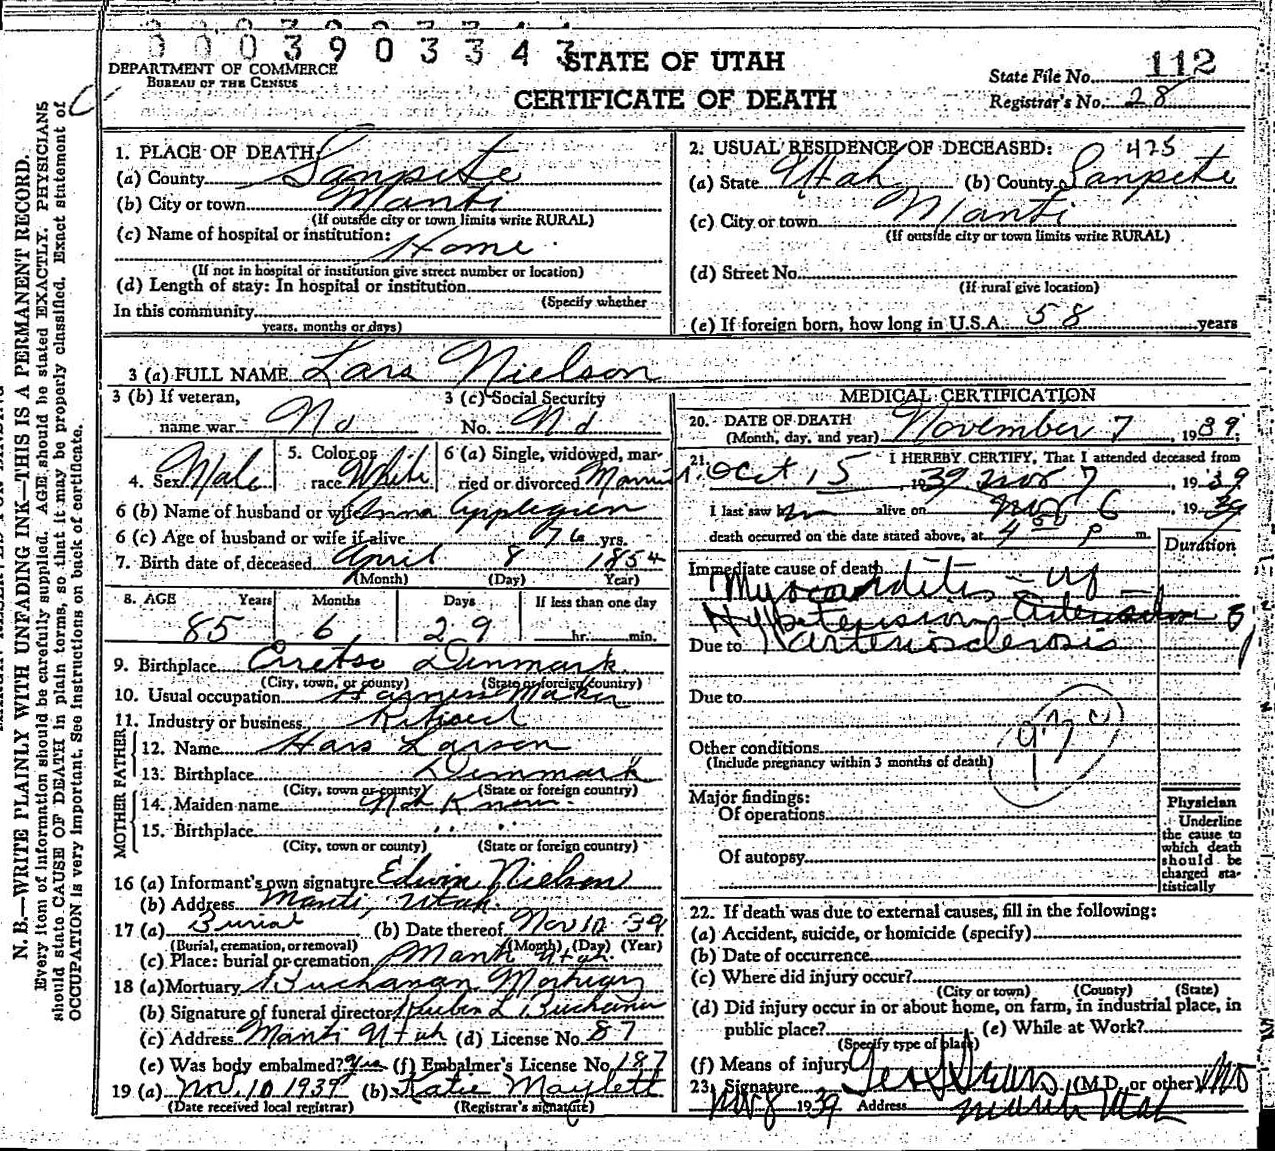 0003903343
STATE OF UTAH
CERTIFICATE OF DEATH
DEPARTMENT OF COMMERCE
BUREAU OF THE CENSUS
State File No. 112
Registrar's No. 28
N. B.—WRITE PLAINLY WITH UNFADING INK—THIS IS A PERMANENT RECORD.
Every item of information should be carefully supplied. AGE should be stated EXACTLY. PHYSICIANS
should state CAUSE OF DEATH in plain terms, so that it may be properly classified. Exact statement of
OCCUPATION is very important. See instructions on back of certificate.
1. PLACE OF DEATH:
(a) County Sanpete
(b) City or town Manti
(If outside city or town limits write RURAL)
(c) Name of hospital or institution:
Home
(If not in hospital or institution give street number or location)
(d) Length of stay: In hospital or institution
(Specify whether
In this community
years, months or days)
2. USUAL RESIDENCE OF DECEASED: 475
(a) State Utah (b) County Sanpete
(c) City or town Manti
(If outside city or town limits write RURAL)
(d) Street No.
(If rural give location)
(e) If foreign born, how long in U.S.A. 58 years
3 (a) FULL NAME Lars Nielson
3 (b) If veteran, 3 (c) Social Security
name war No No. No
4. Sex Male 5. Color or race White 6 (a) Single, widowed, married or divorced Married
6 (b) Name of husband or wife Anna
6 (c) Age of husband or wife if alive 76 yrs.
7. Birth date of deceased April 8 1854
(Month) (Day) Year)
8. AGE Years Months Days If less than one day
85 6 29 hr. min.
9. Birthplace Denmark
(City, town, or county) (State or foreign country)
10. Usual occupation Harness Maker
11. Industry or business Retired
FATHER
12. Name Hans Larson
13. Birthplace Denmark
(City, town or county) (State or foreign country)
MOTHER
14. Maiden name Not Known
15. Birthplace " "
(City, town or county) (State or foreign country)
16 (a) Informant's own signature Edwin Nielson
(b) Address Manti, Utah.
17 (a) Burial (b) Date thereof Nov 10 39
(Burial, cremation, or removal) (Month) (Day) (Year)
(c) Place: burial or cremation Manti Utah.
18 (a) Mortuary Buchanan Mortuary
(b) Signature of funeral director Ruben L Buchanan
(c) Address Manti Utah (d) License No. 87
(e) Was body embalmed? yes (f) Embalmer's License No. 187
19 (a) Nov. 10 1939 (b) Katie Maylett
(Date received local registrar) (Registrar's signature)
MEDICAL CERTIFICATION
20. DATE OF DEATH
(Month, day, and year) November 7, 1939.
21. I HEREBY CERTIFY, That I attended deceased from
Oct 15 1939 Nov 7, 1939
I last saw him alive on Nov 6, 1939
death occurred on the date stated above, at 4 50 P m.
Duration
Immediate cause of death
Myocarditis
Hypertension
Due to Arteriosclerosis
Due to
Other conditions
(Include pregnancy within 3 months of death)
Major findings:
Of operations
Of autopsy
Physician
Underline
the cause to
which death
should be
charged sta-
tistically
22. If death was due to external causes, fill in the following:
(a) Accident, suicide, or homicide (specify)
(b) Date of occurrence
(c) Where did injury occur?
(City or town) (County) (State)
(d) Did injury occur in or about home, on farm, in industrial place, in
public place? (e) While at Work?
(Specify type of place)
(f) Means of injury
23. Signature (M.D. or other) MD
Nov 8 1939 Address Manti Utah